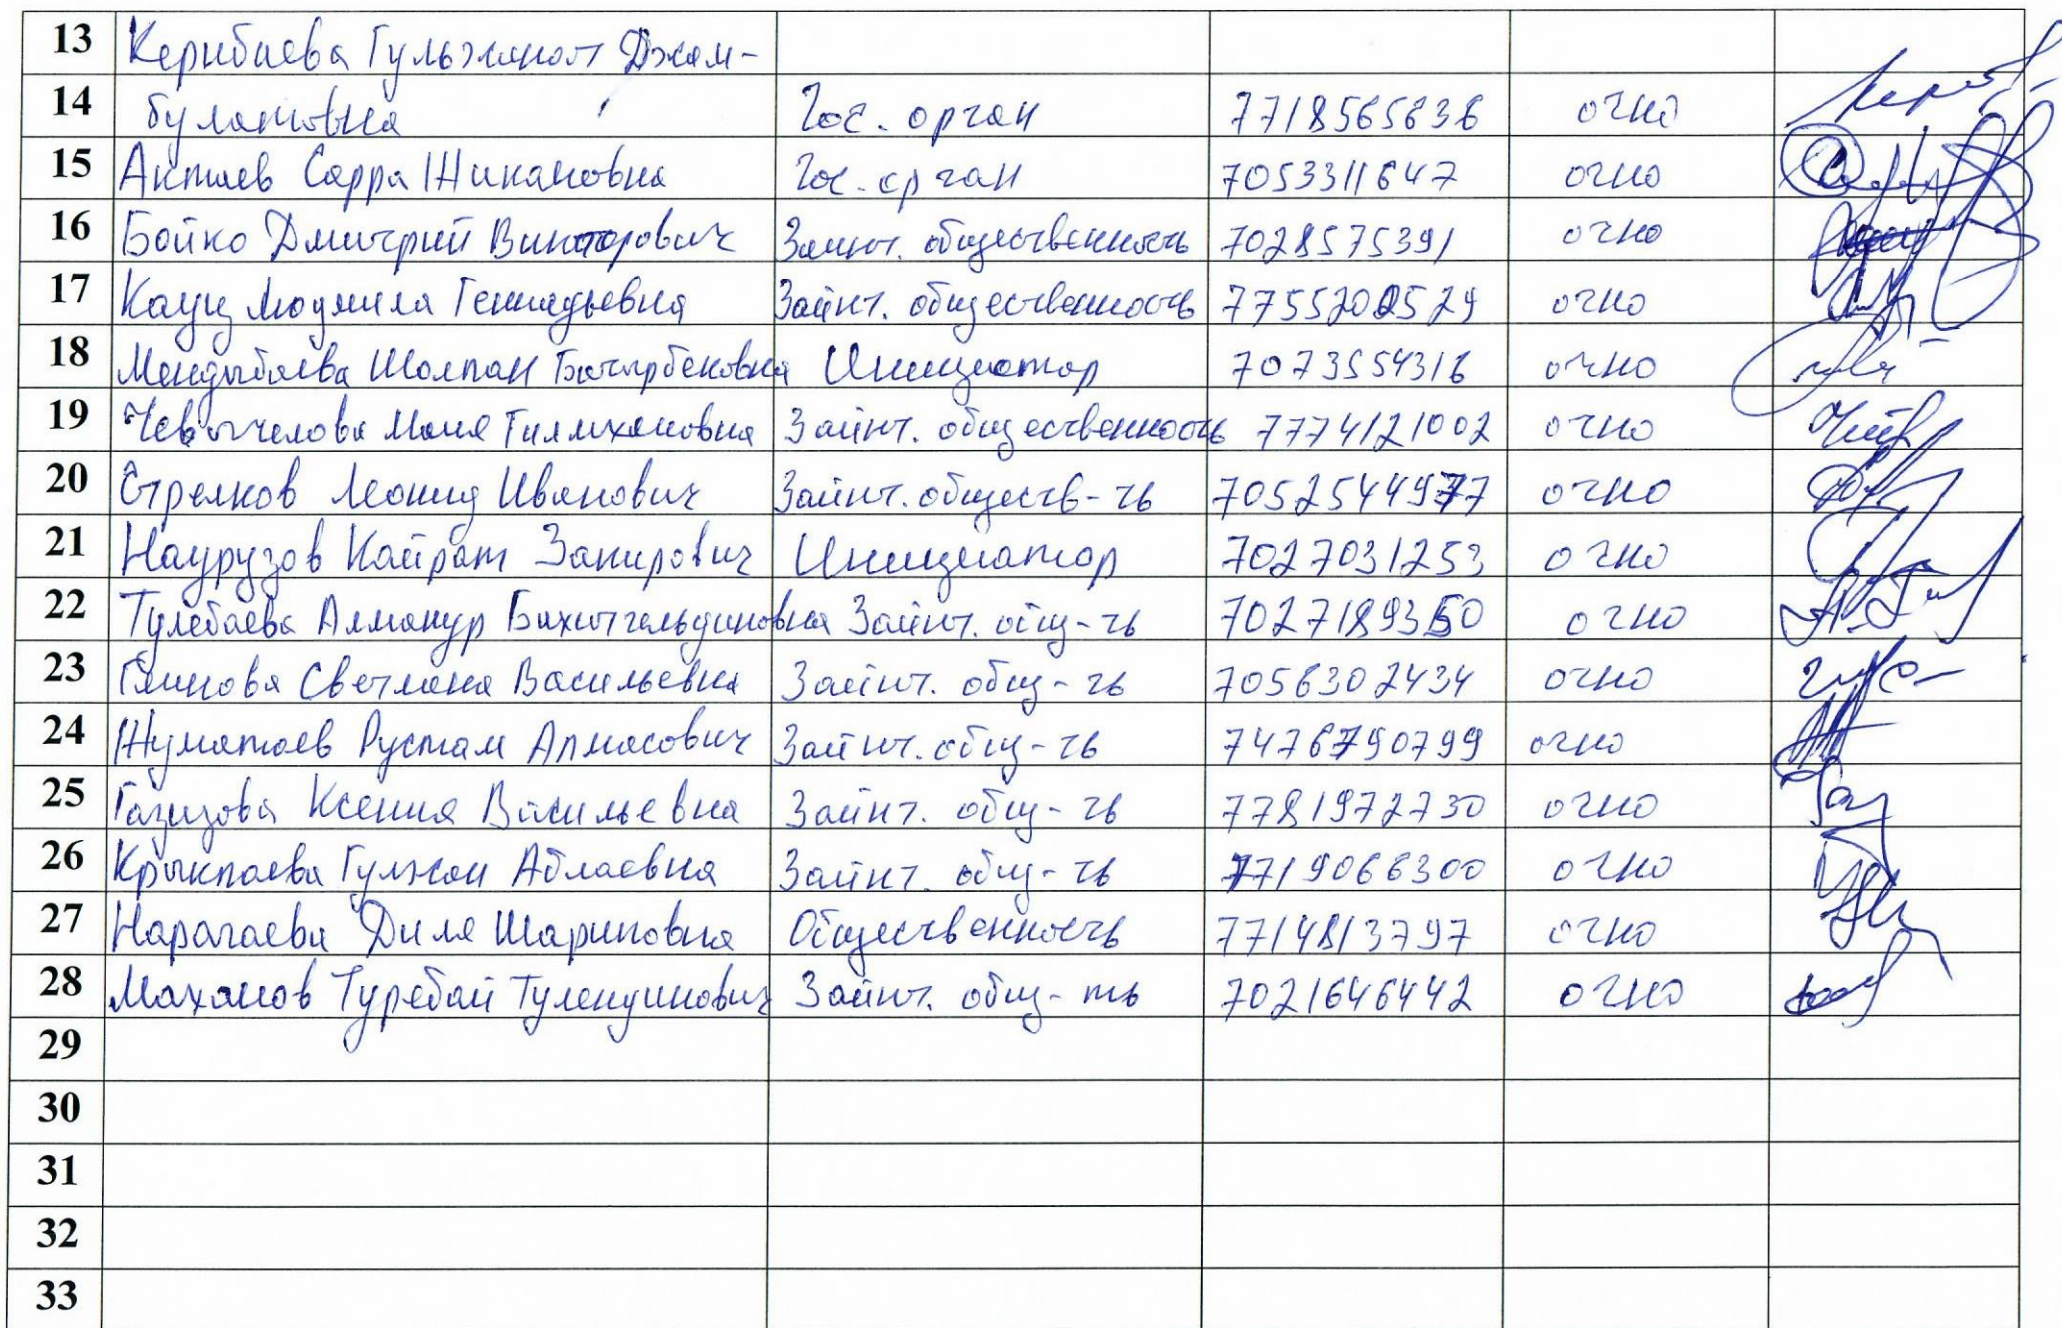 13 Керибаева Гульжанат Джам-
14 булатовна Гос. орган 7718565636 очно
15 Актаев Сарра Жикановна Гос. орган 7053311647 очно
16 Бойко Дмитрий Викторович Заинт. общественность 7028575391 очно
17 Кауц Людмила Геннадьевна Заинт. общественность 7755202529 очно
18 Мендыбаева Шолпан Батырбековна Инициатор 7073554316 очно
19 Мая Заинт. общественность 7774121002 очно
20 Стрелков Леонид Иванович Заинт. обществ-ть 7052544977 очно
21 Наурузов Кайрат Закирович Инициатор 7027031253 очно
22 Тулебаева Алманур Бахытгельдиновна Заинт. общ-ть 7027189350 очно
23 Глинова Светлана Васильевна Заинт. общ-ть 7056302434 очно
24 Жуматаев Рустам Алмасович Заинт. общ-ть 7476790799 очно
25 Газизова Ксения Васильевна Заинт. общ-ть 7781972730 очно
26 Крыкпаева Гулжан Аблаевна Заинт. общ-ть 7719066300 очно
27 Нарагаева Диля Шариповна Общественность 7714813797 очно
28 Маханов Туребай Заинт. общ-ть 7021646442 очно
29
30
31
32
33